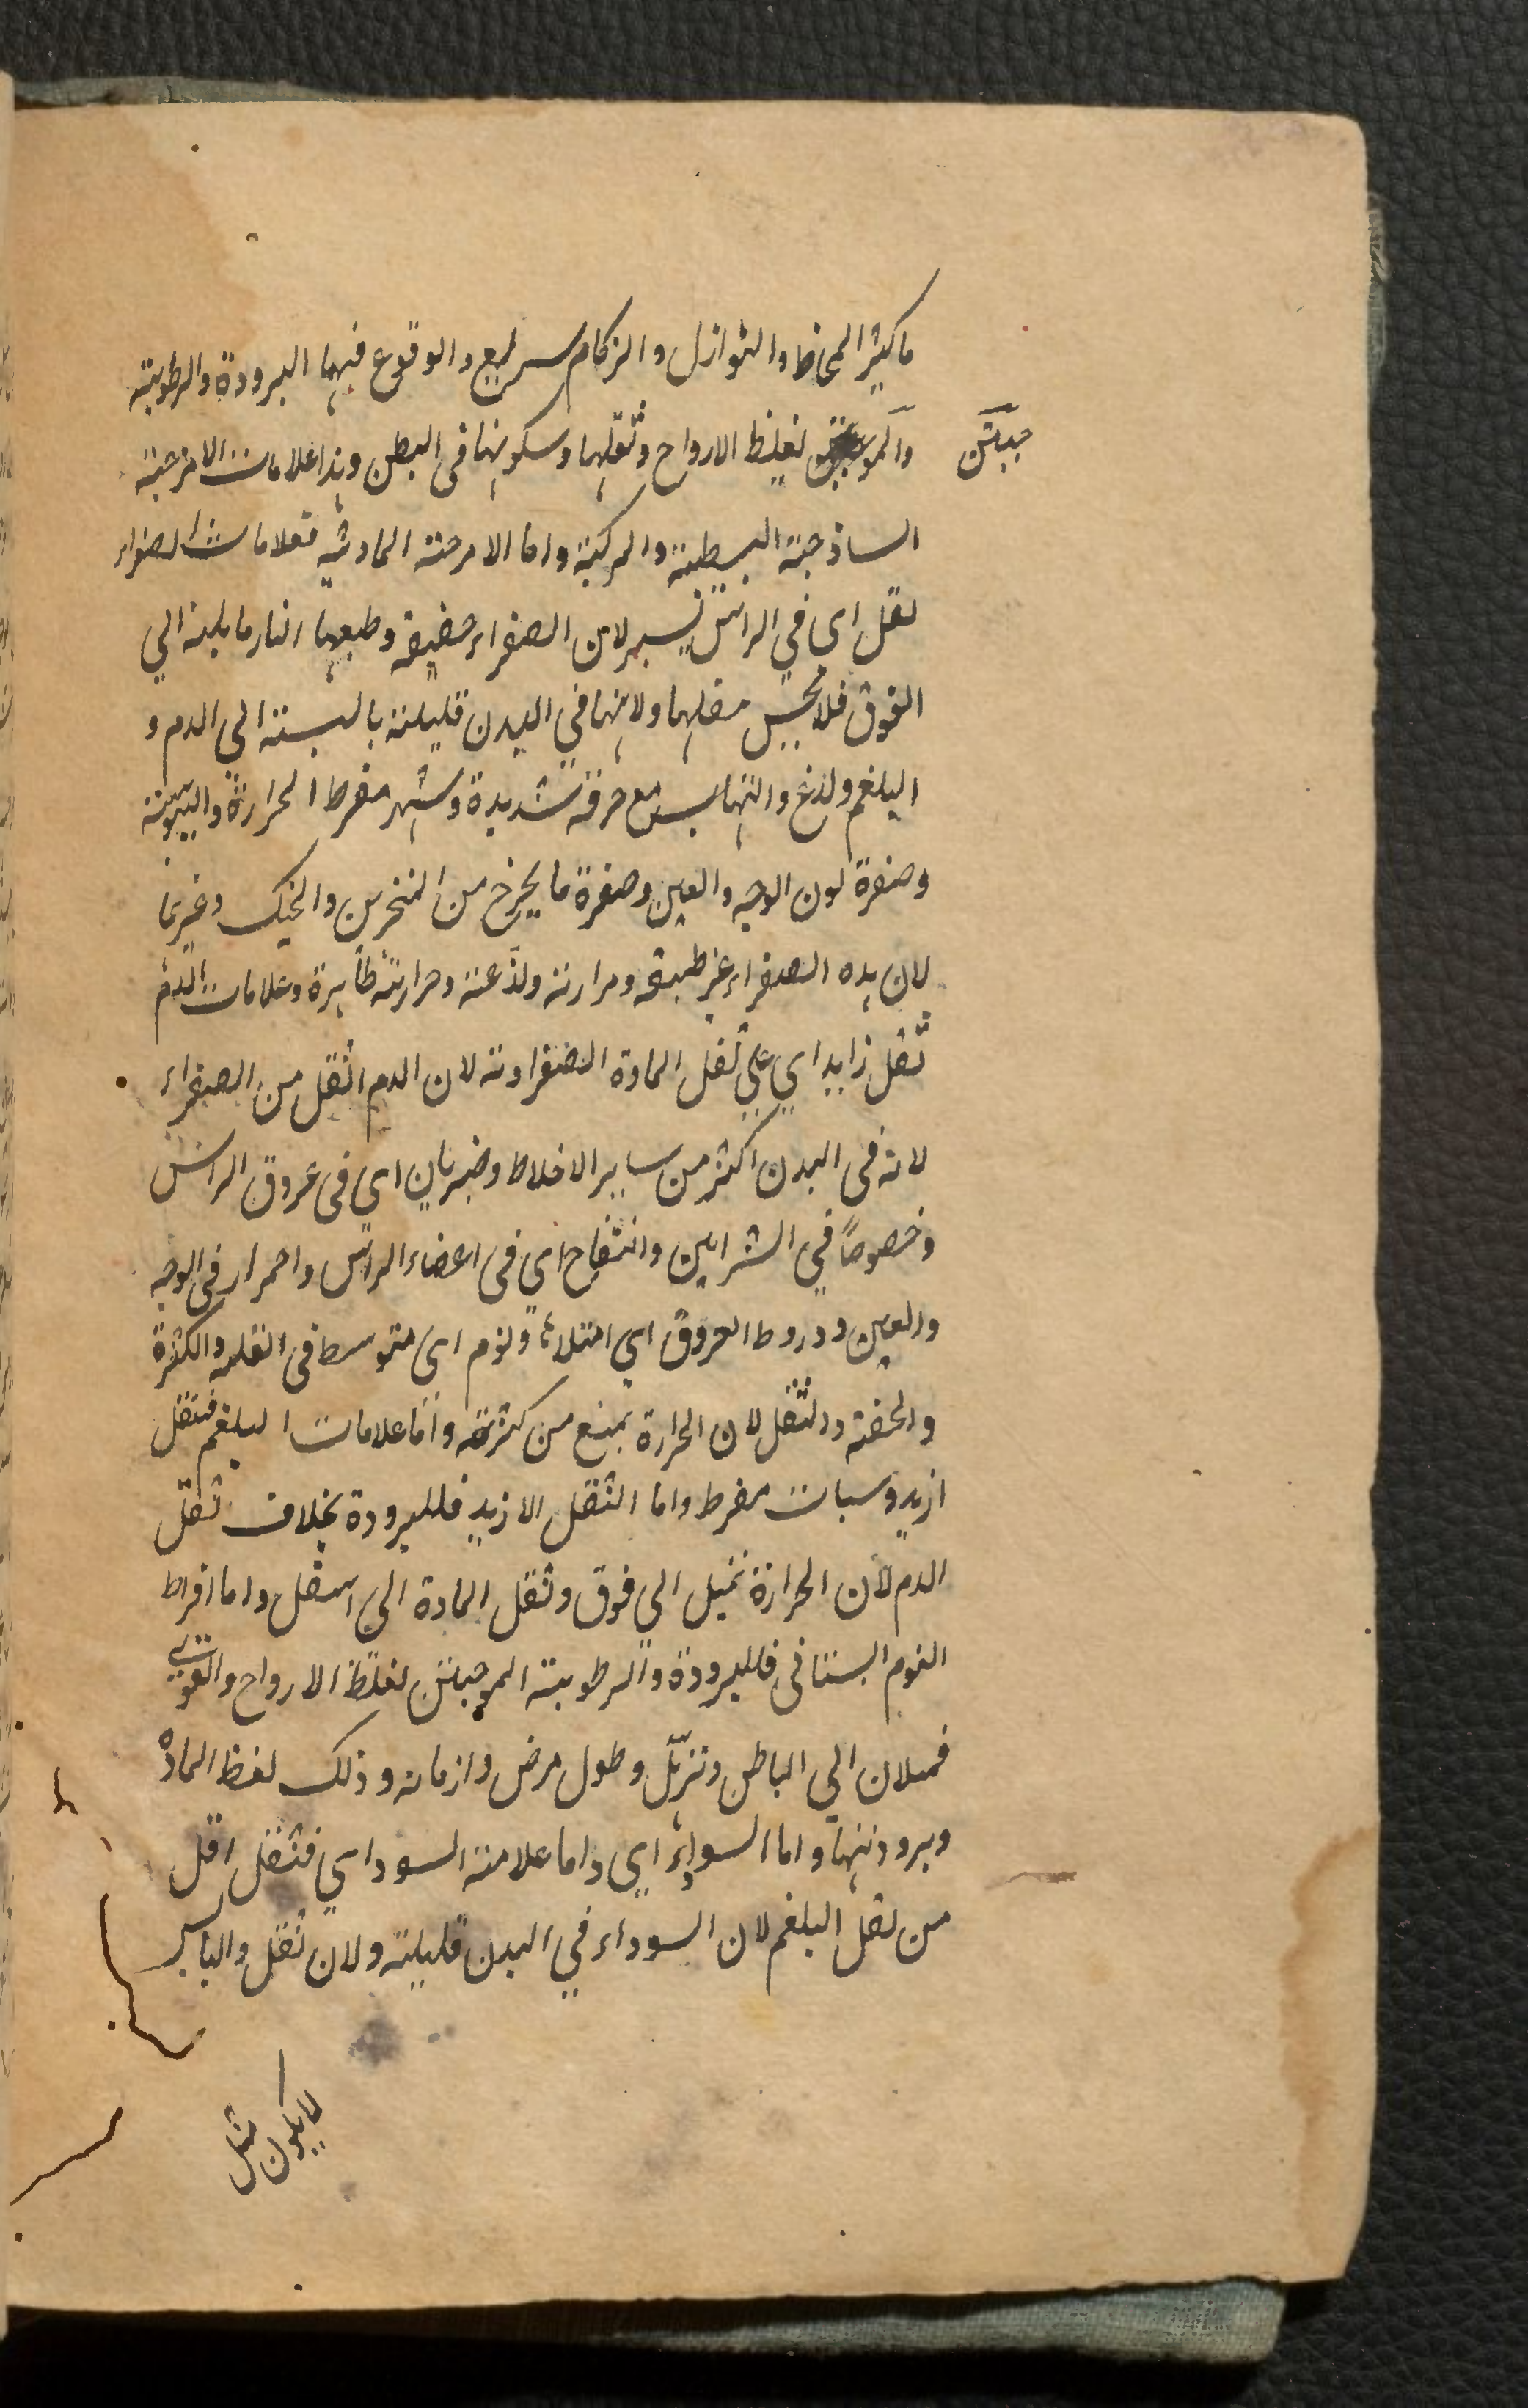 ما كيثر المخاط والنوازل والزكام سريع والوقوع فيهما البرودة والرطوبة
والمو لغيلظ الارواح وثقلها وسكونها فى البطن وهذا علامات الامزجة
جبتين
الساذجة البسيطة والمركبة واما الامزجة المادية فعلامات الصفراء
ثقل اى في الراس يسير لان الصفراء خفيفة وطبعها النار مايلة الي
الفوق فلا يحس مثقلها ولانها في البدن قليلة بالنسبة الى الدم و
البلغم ولذغ والتهاب مع حرقة شديدة وسهر مفرط الحرارة واليبوسة
وصفرة لون الوجه والعين وصفرة ما يخرج من المنخرين والحنك وغيرها
لان هذه الصفراء غير طبيعة ومرارته ولذعته وحرارته ظاهرة وعلامات الدم
ثقل زايد اي علي ثقل المادة الصفراوية لان الدم اثقل من الصفراء
لانه فى البدن اكثر من ساير الاخلاط وضربان اي فى عروق الراس
وخصوصاً في الشراين وانتفاخ اي فى اعضاء الراس واحمرار فى الوجه
والعين ودروط العروق اي امتلاء ونوم اى متوسط فى القلة والكثرة
والخفة والثقل لان الحرارة يمنع من كثرته واما علامات البلغم فثقل
ازيد وسبات مفرط واما الثقل الازيد فللبرودة بخلاف ثقل
الدم لان الحرارة تميل الى فوق وثقل المادة الى اسفل واما افراط
النوم السباتى فللبرودة والرطوبة الموجبتين لغلظ الارواح والقوي
فميلان الي الباطن وترهّل وطول مرض وازمانه وذلك لغظ المادة
وبرودتها واما السواء اي واما علامة السوداي فثقل اقل
من ثقل البلغم لان السوداء في البدن قليلة ولان ثقل واليابس
لا يكون مثل